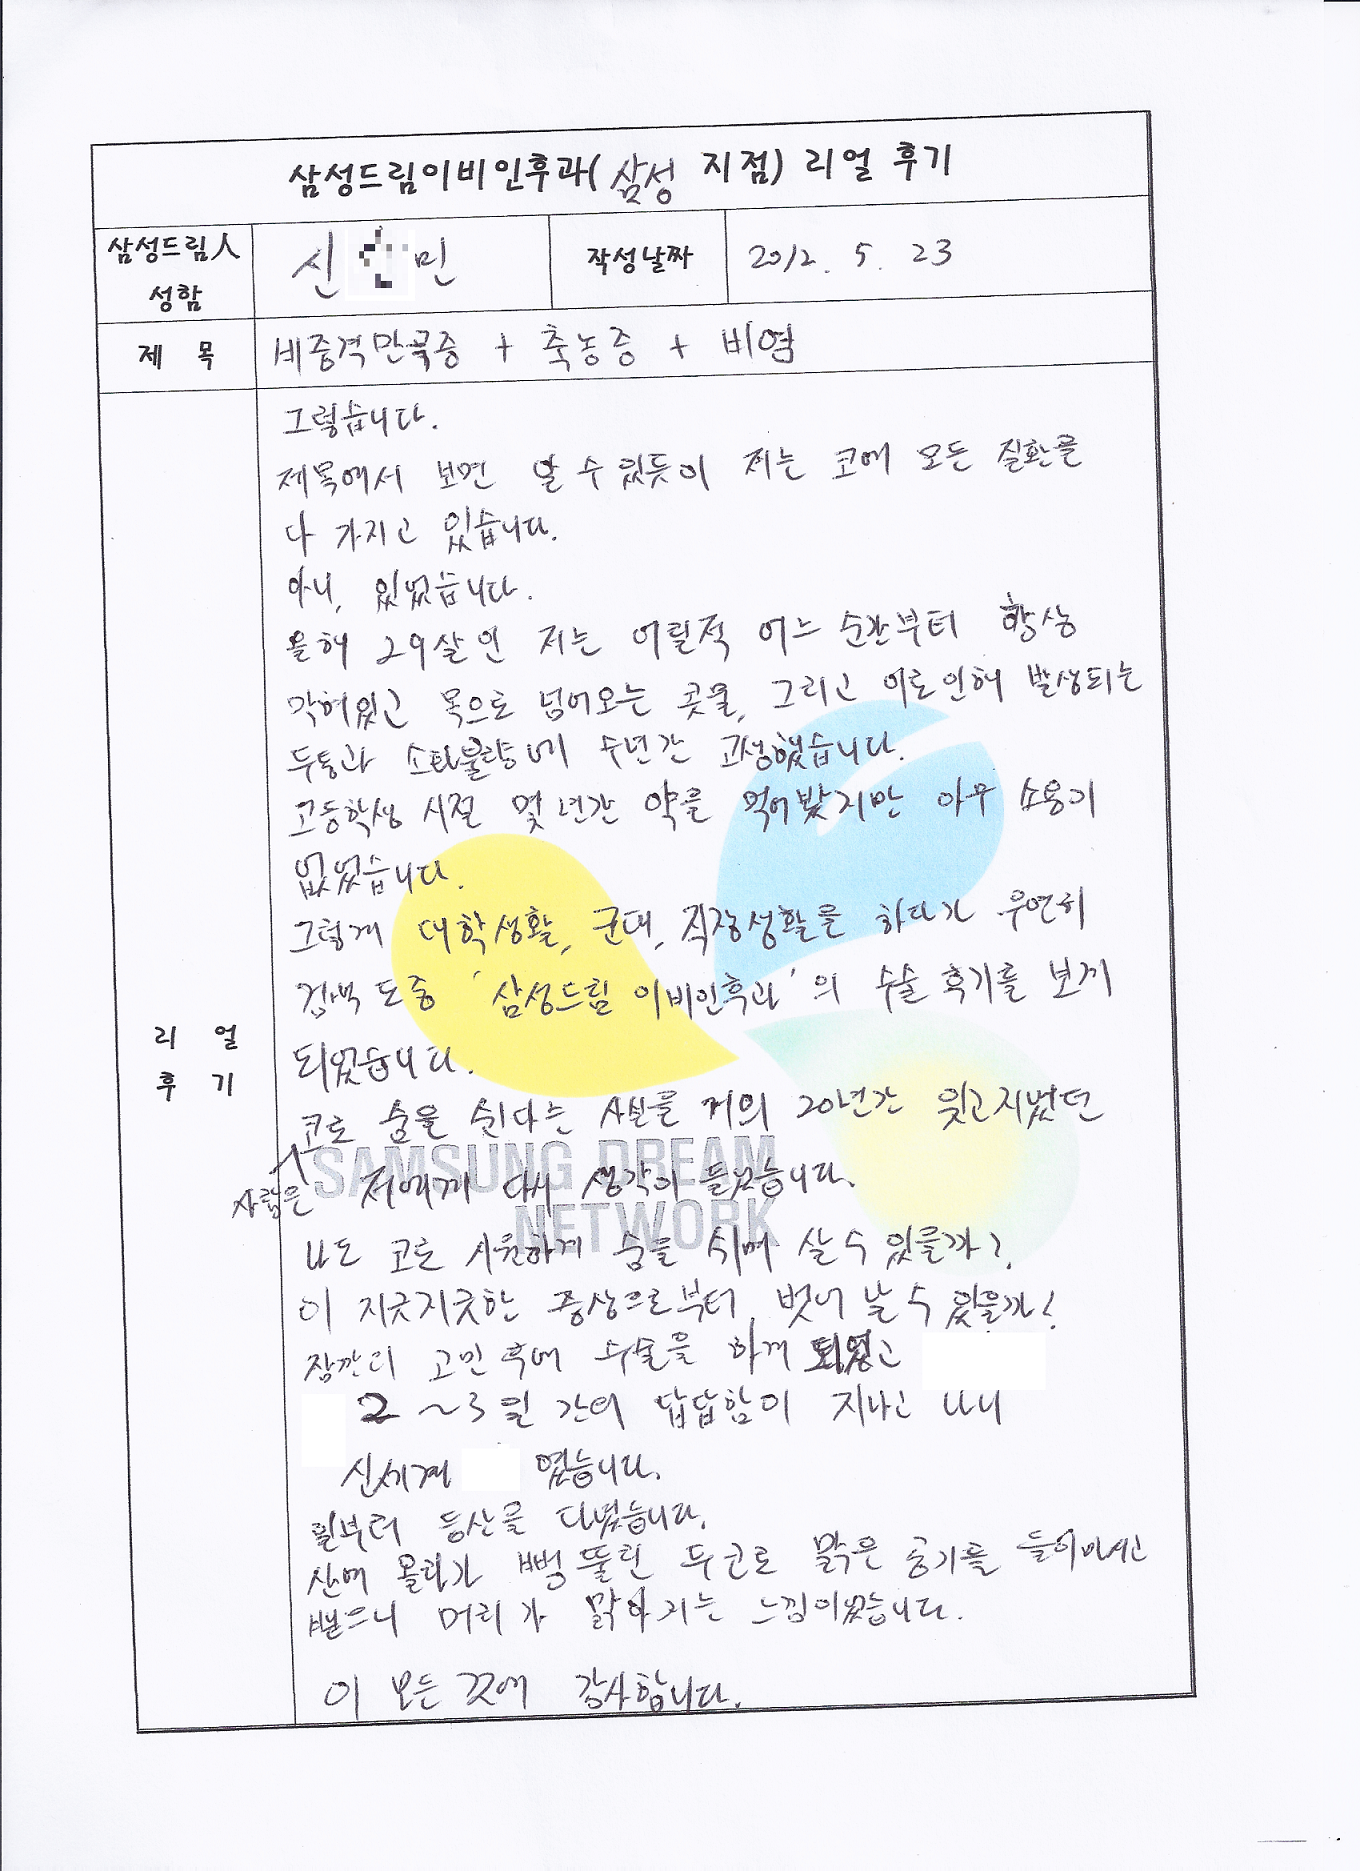 삼성드림이비인후과(삼성 지점) 리얼 후기
삼성드림人 성함
신 민
작성날짜
2012. 5. 23
제 목
비중격만곡증 + 축농증 + 비염
리 얼
후 기
그렇습니다.
제목에서 보면 알 수 있듯이 저는 코에 모든 질환을
다 가지고 있습니다.
아니, 있었습니다.
올해 29살인 저는 어릴적 어느 순간부터 항상
막혀있고 목으로 넘어오는 콧물, 그리고 이로인해 발생되는
두통과 소화불량에 수년간 고생했습니다.
고등학생 시절 몇 년간 약을 먹어봤지만 아무 소용이
없었습니다.
그렇게 대학생활, 군대, 직장생활을 하다가 우연히
검색 도중 '삼성드림 이비인후과'의 수술 후기를 보게
되었습니다.
사람은 코로 숨을 쉰다는 사실을 거의 20년간 잊고지냈던
저에게 다시 생각이 들었습니다.
나도 코로 시원하게 숨을 쉬며 살 수 있을까?
이 지긋지긋한 증상으로부터 벗어 날 수 있을까?
잠깐의 고민 후에 수술을 하게 되었고
2~3일 간의 답답함이 지나고 나니
신세계 였습니다.
부터 등산을 다녔습니다.
산에 올라가 뻥 뚫린 두 코로 맑은 공기를 들이마시고
뱉으니 머리가 맑아지는 느낌이었습니다.
이 모든 것에 감사합니다.
SAMSUNG DREAM
NETWORK